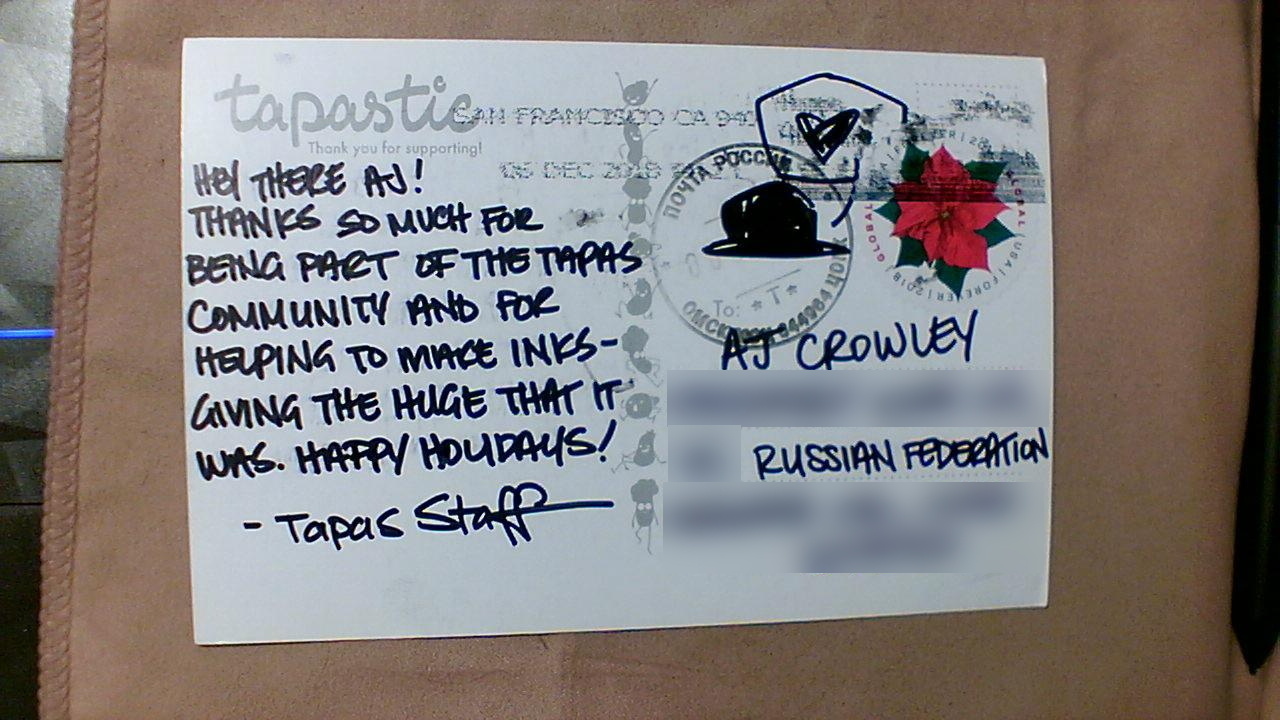 tapastic
Thank you for supporting!
SAN FRANCISCO CA 940
06 DEC 2018
HEY THERE AJ!
THANKS SO MUCH FOR
BEING PART OF THE TAPAS
COMMUNITY AND FOR
HELPING TO MAKE INKS-
GIVING THE HUGE THAT IT
WAS. HAPPY HOLIDAYS!
- Tapas Staff
ПОЧТА РОССИИ
ОМСК
644984
To:
GLOBAL | USA | FOREVER | 2018 | GLOBAL
AJ CROWLEY
RUSSIAN FEDERATION